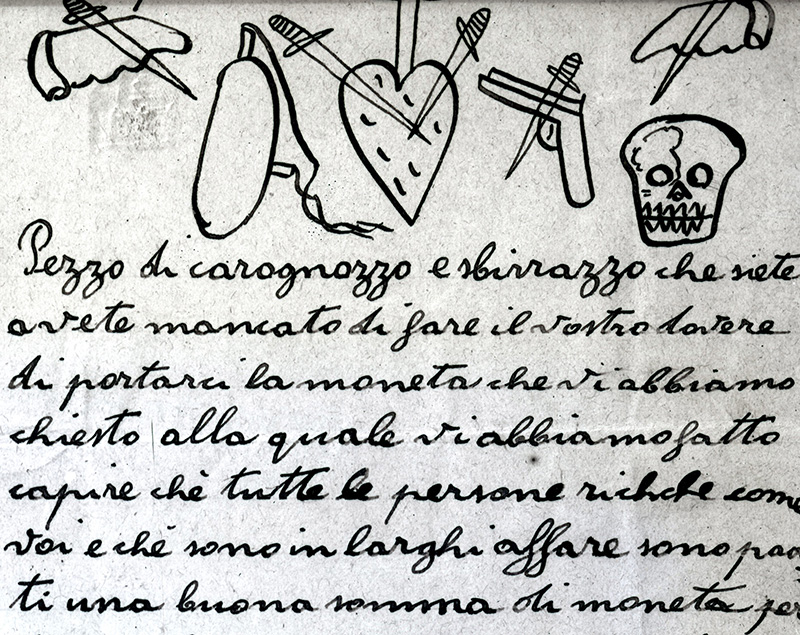 Pezzo di carognozzo e sbirrazzo che siete
avete mancato di fare il vostro dovere
di portarci la moneta che vi abbiamo
chiesto alla quale vi abbiamo fatto
capire chè tutte le persone richche come
voi e chè sono in larghi affare sono pag
ti una buona somma di moneta per